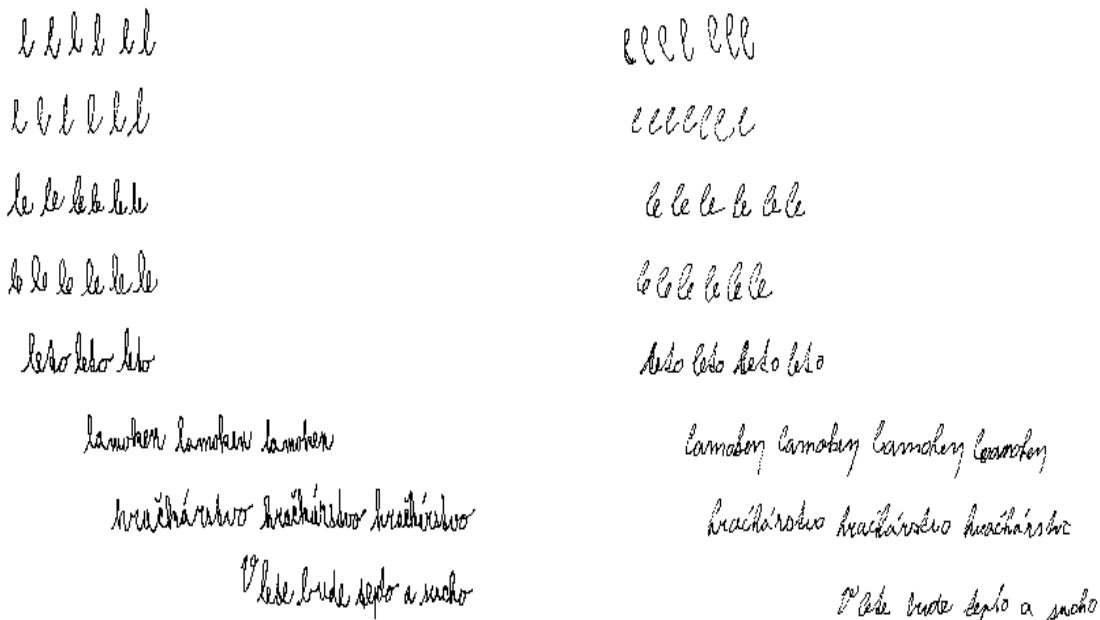 l l l l l l
l l l l l l
le le le le le le
le le le le le le
leto leto leto
lamoken lamoken lamoken
hračkárstvo hračkárstvo hračkárstvo
V lete bude teplo a sucho
l l l l l l l
l l l l l l l
le le le le le le
le le le le le le
leto leto leto leto
lamoken lamoken lamoken lamoken
hračkárstvo hračkárstvo hračkárstvo
V lete bude teplo a sucho